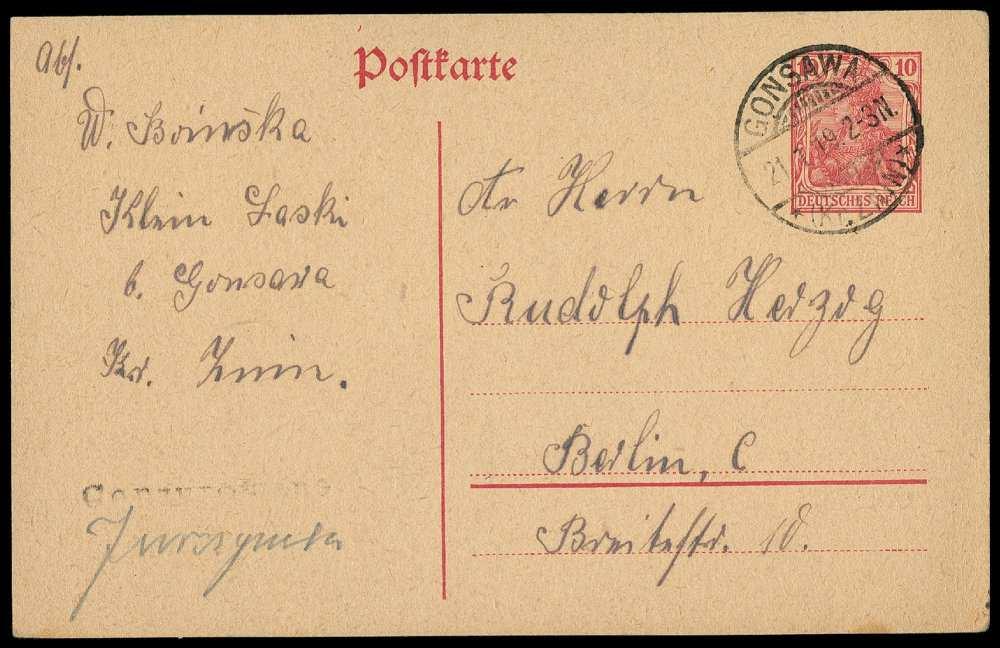 Postkarte
Abs.
W. Boinska
Klein Laski
b. Gonsawa
Kr. Znin.
10
DEUTSCHES REICH
GONSAWA
21. 19. 2-3N.
An Herrn
Rudolph Herzog
Berlin, C
Breitestr. 10.